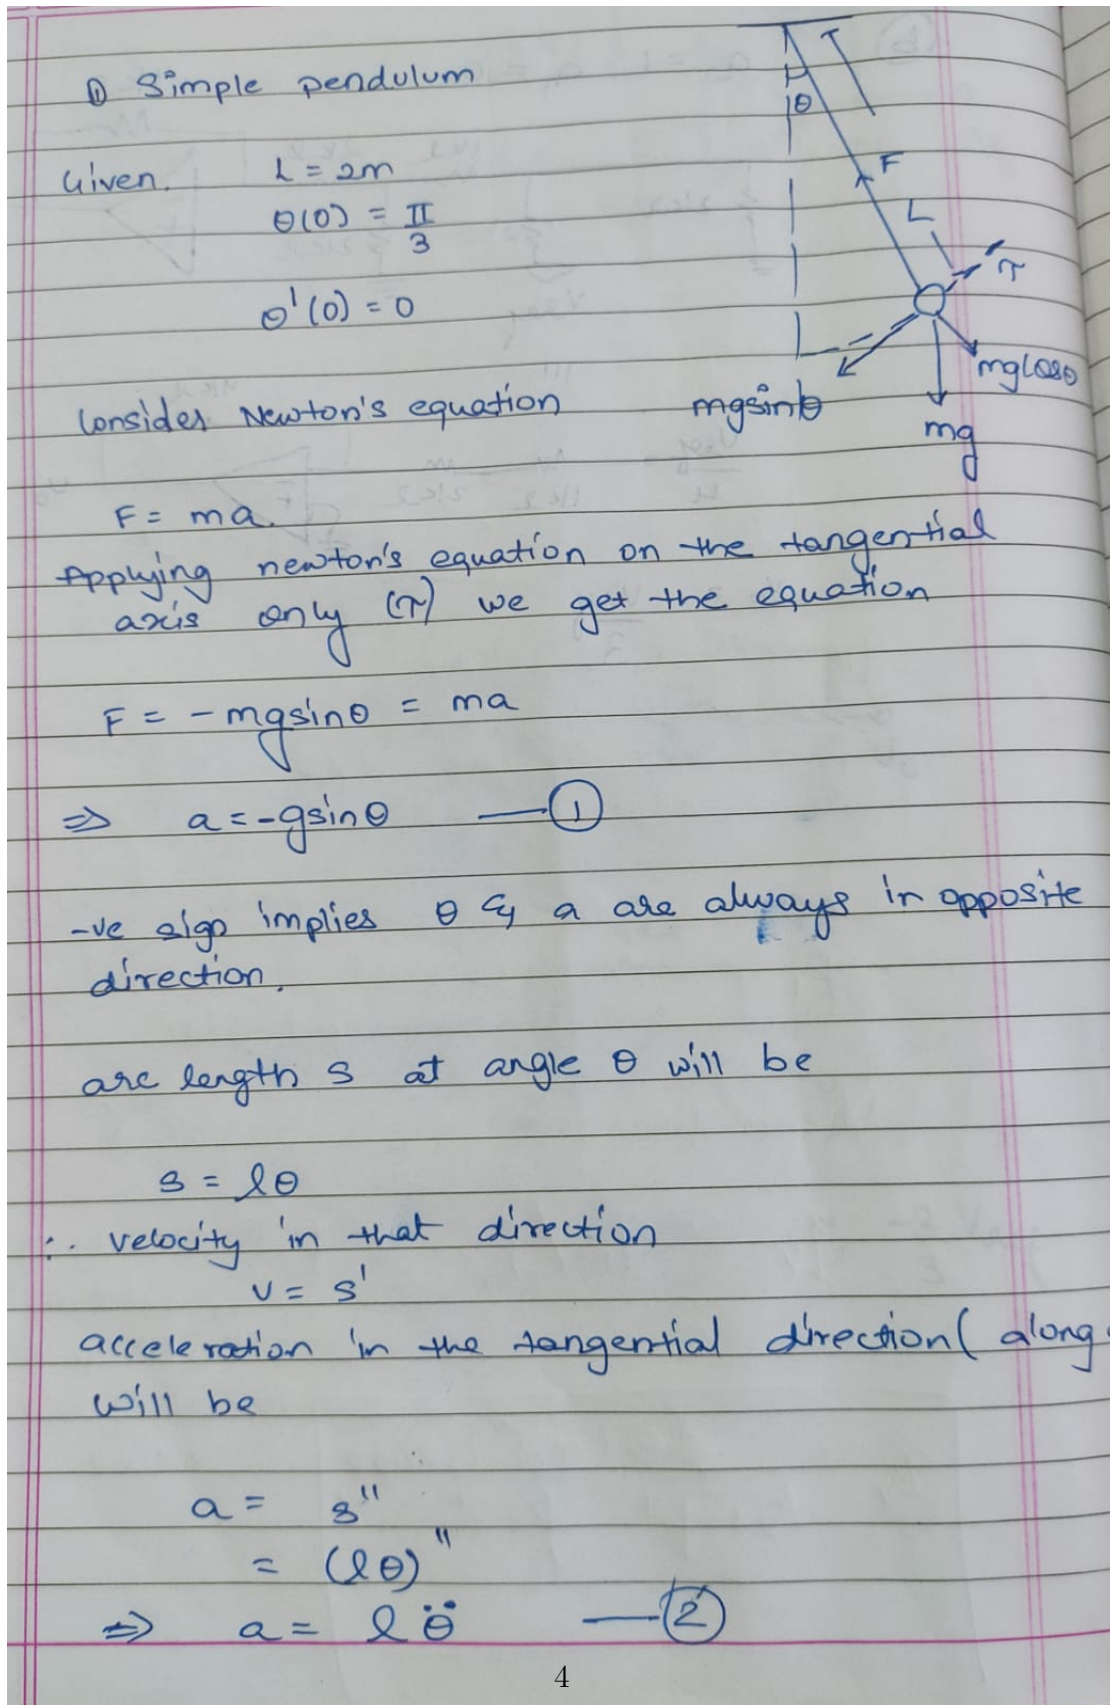 ① Simple pendulum
Given. L = 2m
θ(0) = π/3
θ'(0) = 0
θ
F
L
τ
mgsinθ
mgcosθ
mg
Consider Newton's equation
F = ma.
Applying newton's equation on the tangential
axis only (τ) we get the equation
F = - mgsinθ = ma
⇒ a = -gsinθ —①
-ve sign implies θ & a are always in opposite
direction.
arc length s at angle θ will be
s = lθ
∴ velocity in that direction
v = s'
acceleration in the tangential direction ( along
will be
a = s''
= (lθ)''
⇒ a = lθ̈ —②
4